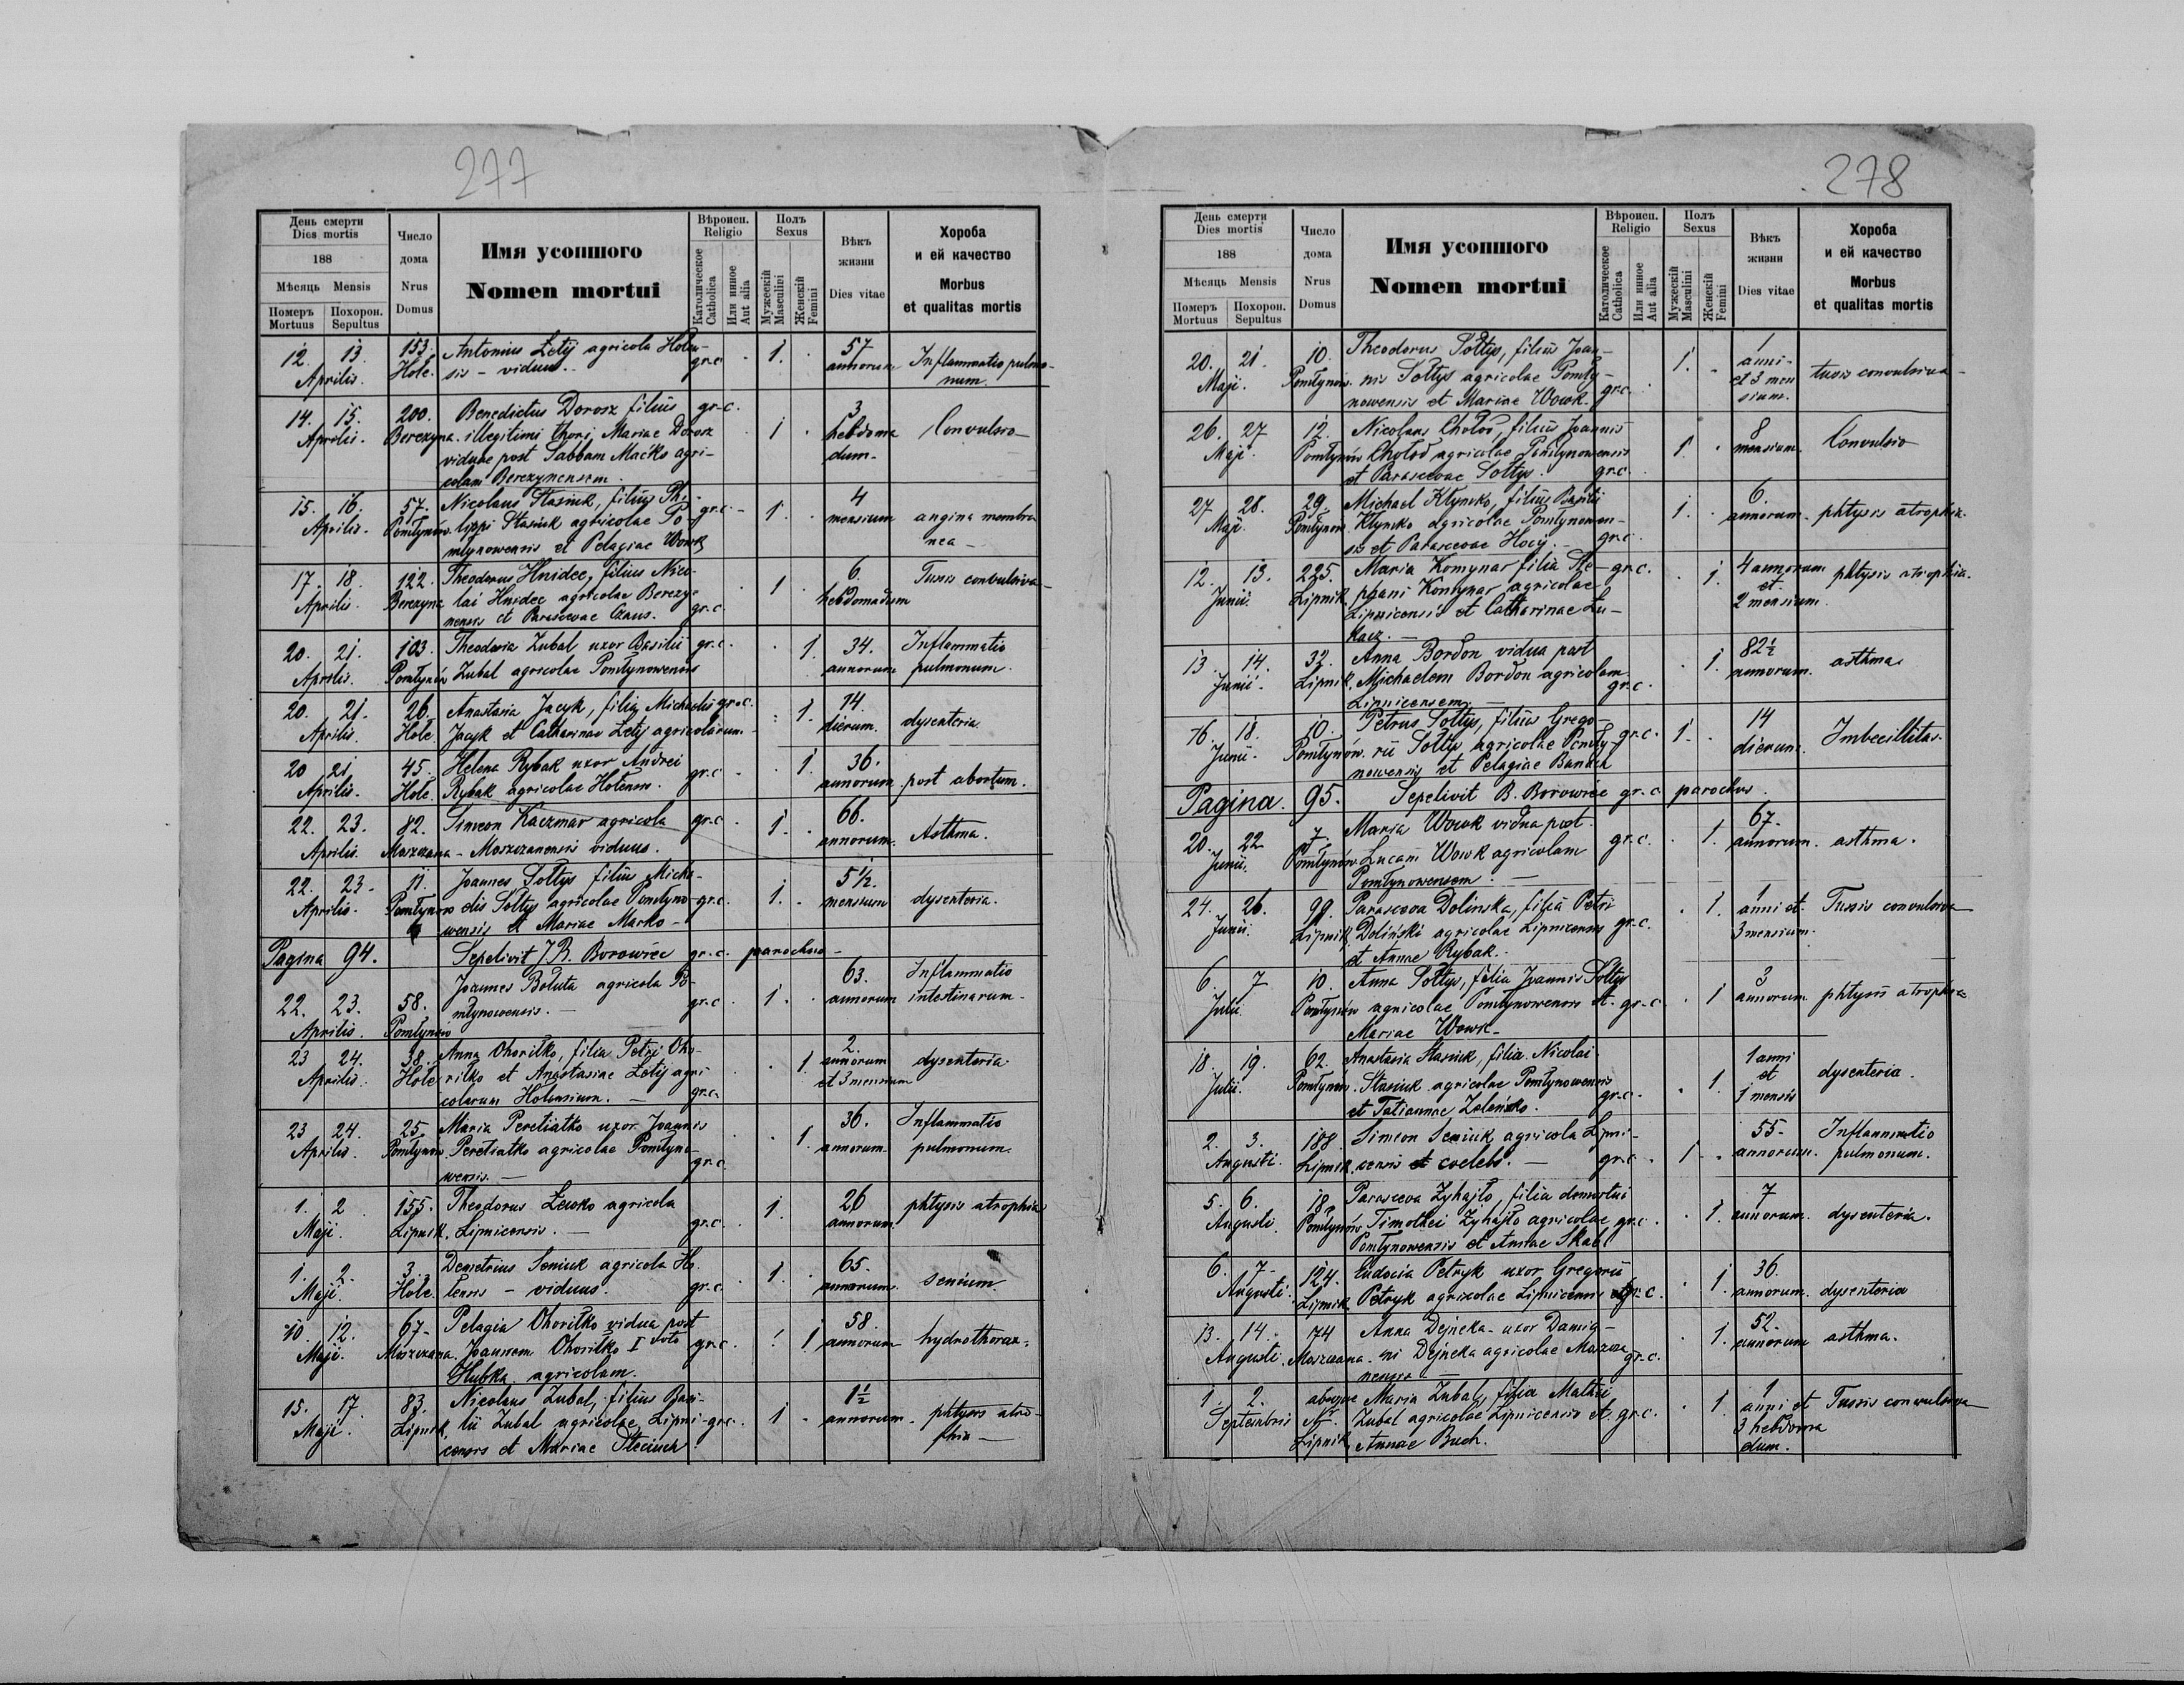 277
День смерти Dies mortis
188
Мѣсяць Mensis
Померъ Mortuus
Похорон. Sepultus
Число дома Nrus Domus
Имя усопшого
Nomen mortui
Вѣроисп. Religio
Католическое Catholica
Или инное Aut alia
Полъ Sexus
Мужескій Masculini
Женскій Femini
Вѣкъ жизни Dies vitae
Хороба и ей качество
Morbus et qualitas mortis
12. 13. 153. Antonius Letij agricola Holen- 57
Aprilis. Hole. sis - viduus. gr.c. 1. annorum Inflammatio pulmo-
num.
14. 15. 200. Benedictus Dorosz filius gr.c. 3
Aprilis. Berezyna. illegitimi thori, Mariae Dorosz 1 hebdoma Convulsio
viduae post Sabbam Maćko agri- dum.
colam Berezynensem.
15. 16. 57. Nicolaus Stasiuk, filius Phi- gr.c. 4
Aprilis. Pomłynów. lippi Stasiuk agricolae Po- 1. mensium angina membra
młynowensis et Pelagiae Wowk nea
17. 18. 122. Theodorus Hnidec, filius Nico- 6. Tussis convulsiva
Aprilis. Berezyna lai Hnidec agricolae Berezy- 1 hebdomadum
nensis et Parascevae gr.c.
20. 21. 103. Theodosia Zubal uxor Basilii gr.c. 1. 34. Inflammatio
Aprilis. Pomłynów Zubal agricolae Pomłynowensis annorum pulmonum.
20. 21. 26. Anastasia Jacyk, filia Michaelis gr.c. 1. 14.
Aprilis. Hole Jacyk et Catharinae Letij agricolarum dierum. dysenteria
20 21 45. Helena Rybak uxor Andrei gr.c. 1. 36.
Aprilis. Hole. Rybak agricolae Holensis. annorum. post abortum.
22. 23. 82. Simeon Kaczmar agricola gr.c. 1. 66.
Aprilis. Moszczana - Moszczanensis viduus. annorum. Asthma.
22. 23. 11. Joannes Sołtys filius Micha- 5 1/2.
Aprilis. Pomłynów elis Sołtys agricolae Pomłyno- gr.c. 1. mensium dysenteria.
wensis et Mariae Marko
Pagina 94. Sepelivit J.B. Borowiec gr.c. parochus
22. 23. 58. Joannes Boluta agricola Po- 63. Inflammatio
Aprilis. Pomłynów młynowensis. gr.c 1. annorum intestinarum.
23 24. 38. Anna Ohoriłko, filia Petri Oho- 2. annorum dysenteria
Aprilis. Hole riłko et Anastasiae Letij agri- 1. et 3 mensium
colarum Holensium. gr.c.
23 24. 25. Maria Peretiatko uxor Joannis 36. Inflammatio
Aprilis. Pomłynów. Peretiatko agricolae Pomłyno- 1. annorum pulmonum.
wensis. gr.c.
1. 2 155. Theodorus Lewko agricola 1. 26 phtysis atrophia
Maji. Lipnik. Lipnicensis. gr.c. annorum.
1. 2. 3. Demetrius Seniuk agricola Ho- 1. 65.
Maji. Hole. lensis - viduus. gr.c. annorum. senium.
10. 12. 67. Pelagia Ohoriłko vidua post 58.
Maji. Moszczana. Joannem Ohoriłko I voto gr.c. 1 annorum hydrothorax.
Hubka agricolam.
15. 17. 83. Nicolaus Zubal, filius Basi- 1 1/2
Maji. Lipnik. lii Zubal agricolae Lipni- gr.c. 1 annorum. phtysis atro-
censis et Mariae phia
278
День смерти Dies mortis
188
Мѣсяць Mensis
Померъ Mortuus
Похорон. Sepultus
Число дома Nrus Domus
Имя усопшого
Nomen mortui
Вѣроисп. Religio
Католическое Catholica
Или инное Aut alia
Полъ Sexus
Мужескій Masculini
Женскій Femini
Вѣкъ жизни Dies vitae
Хороба и ей качество
Morbus et qualitas mortis
20. 21. 10. Theodorus Sołtys, filius Joan- 1 anni
Maji. Pomłynów. nis Sołtys agricolae Pomły- 1. et 3 men tusis convulsiva
nowensis et Mariae Wowk. gr.c. sium.
26. 27 12. Nicolaus Chołod, filius Joannis 8
Maji. Pomłynów Chołod agricolae Pomłynowensis 1. mensium. Convulsio
et Parascevae Sołtys. gr.c.
27 28. 29. Michael Kłymko, filius Basilii 6.
Maji. Pomłynów. Kłymko agricolae Pomłynowen- 1. annorum. phtysis atrophia.
sis et Parascevae Hocij. gr.c.
12. 13. 225. Maria Komynar filia Ste- gr.c. 4 annorum
Junii. Lipnik phani Komynar agricolae 1. et phtysis atrophia.
Lipnicensis et Catharinae Łu- 2 mensium.
kacz.
13. 14. 32. Anna Bordon vidua post 82 1/2
Junii. Lipnik. Michaelem Bordon agricolam 1. annorum. asthma.
Lipnicensem. gr.c.
16. 18. 10. Petrus Sołtys, filius Grego- gr.c. 1. 14
Junii. Pomłynów. rii Sołtys agricolae Pomły- dierum. Imbecillitas.
nowensis et Pelagiae
Pagina. 95. Sepelivit B. Borowiec gr.c parochus.
20. 22 7 Maria Wowk vidua post 67.
Junii. Pomłynów. Lucam Wowk agricolam gr.c. 1. annorum. asthma.
Pomłynowensem.
24. 26. 99. Parasceva Dolinska, filia Petri 1 anni et Tussis convulsiva
Junii. Lipnik Doliński agricolae Lipnicensis gr.c. 1. 3 mensium.
et Annae Rybak.
6. 7 10. Anna Sołtys, filia Joannis Sołtys 3
Julii. Pomłynów agricolae Pomłynowensis et gr.c. 1 annorum phtysis atrophia
Mariae Wowk
18. 19. 62. Anastasia Stasiuk, filia Nicolai 1 anni
Julii. Pomłynów. Stasiuk agricolae Pomłynowensis 1. et dysenteria.
et Tatiannae gr.c. 1 mensis
2. 3. 188. Simeon Seniuk agricola Lipni- 55. Inflammatio
Augusti. Lipnik. censis et coelebs. gr.c. 1 annorum. pulmonum.
5. 6. 18. Parasceva Zyhajło, filia demortui 7
Augusti. Pomłynów Timothei Zyhajło agricolae gr.c. 1. annorum. dysenteria.
Pomłynowensis et Annae Skab
6. 7. 124. Eudocia Petryk uxor Gregorii 36.
Augusti. Lipnik Petryk agricolae Lipnicensis gr.c. 1. annorum. dysenteria
13. 14. 74 Anna Dejneka uxor Damia- 52.
Augusti. Moszczana. ni Dejneka agricolae Moszcza gr.c. 1. annorum asthma.
nensis
1 2. absque Maria Zubal, filia Mathei 1
Septembris Nr. Zubal agricolae Lipnicensis et gr.c. 1 anni et Tussis convulsiva
Lipnik Annae Buch. 3 hebdoma
dum.